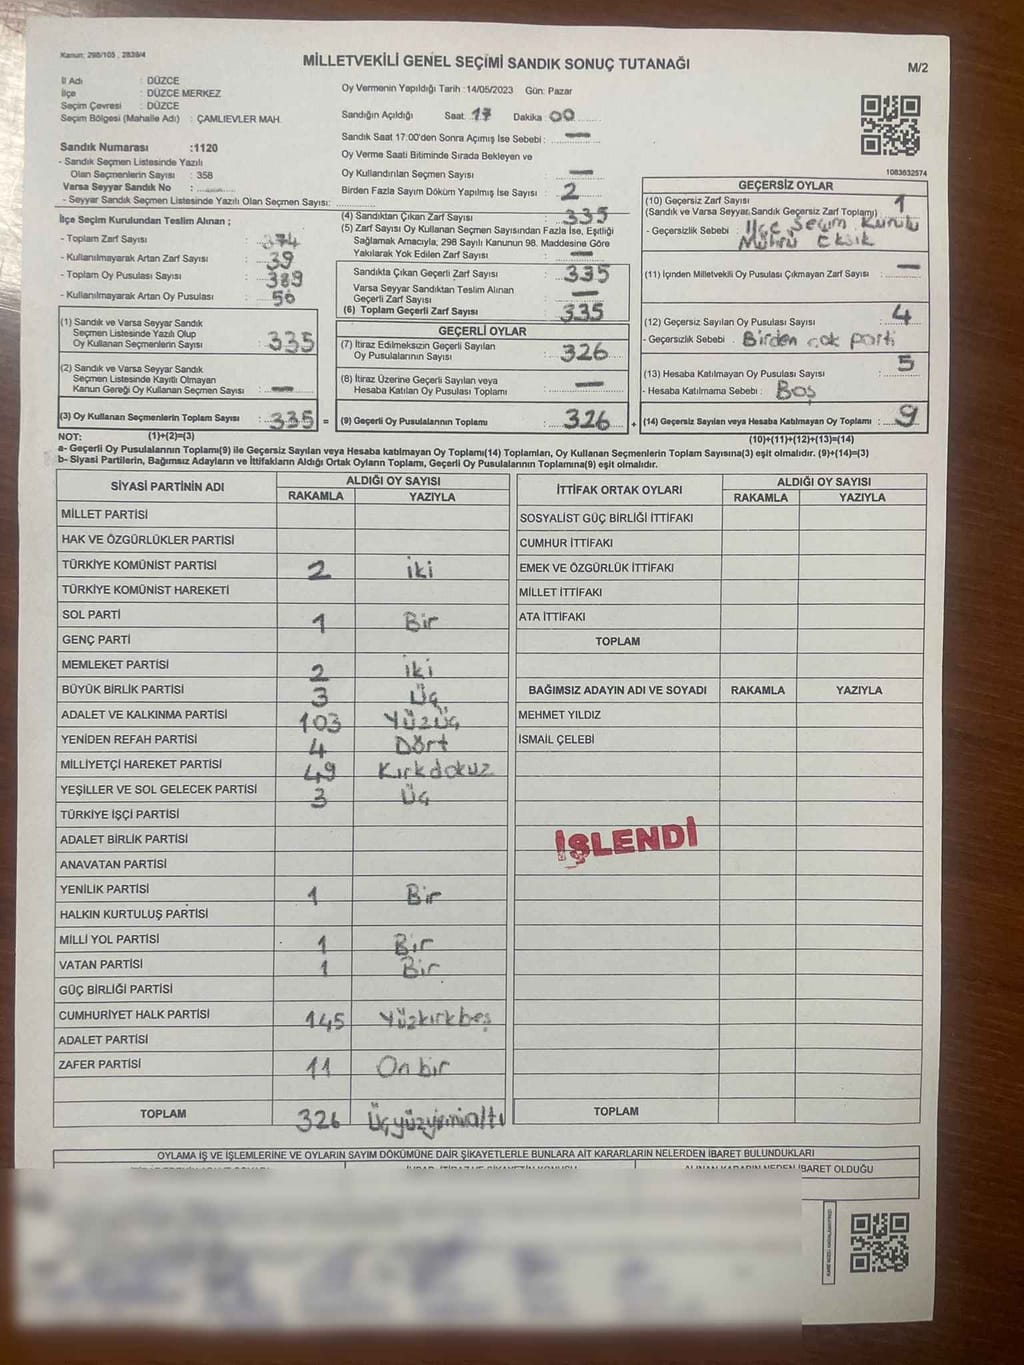 Kanun: 298/105 , 2839/4
MİLLETVEKİLİ GENEL SEÇİMİ SANDIK SONUÇ TUTANAĞI
M/2
İl Adı : DÜZCE
İlçe : DÜZCE MERKEZ
Seçim Çevresi : DÜZCE
Seçim Bölgesi (Mahalle Adı) : ÇAMLIEVLER MAH.
Sandık Numarası :1120
- Sandık Seçmen Listesinde Yazılı
Olan Seçmenlerin Sayısı : 358
Varsa Seyyar Sandık No :
- Seyyar Sandık Seçmen Listesinde Yazılı Olan Seçmen Sayısı:
Oy Vermenin Yapıldığı Tarih :14/05/2023 Gün: Pazar
Sandığın Açıldığı Saat: 17 Dakika : 00
Sandık Saat 17:00'den Sonra Açımış İse Sebebi : —
Oy Verme Saati Bitiminde Sırada Bekleyen ve
Oy Kullandırılan Seçmen Sayısı : —
Birden Fazla Sayım Döküm Yapılmış İse Sayısı : 2
1083632574
İlçe Seçim Kurulundan Teslim Alınan ;
- Toplam Zarf Sayısı : 374
- Kullanılmayarak Artan Zarf Sayısı : 39
- Toplam Oy Pusulası Sayısı : 389
- Kullanılmayarak Artan Oy Pusulası : 56
(1) Sandık ve Varsa Seyyar Sandık
Seçmen Listesinde Yazılı Olup
Oy Kullanan Seçmenlerin Sayısı : 335
(2) Sandık ve Varsa Seyyar Sandık
Seçmen Listesinde Kayıtlı Olmayan
Kanun Gereği Oy Kullanan Seçmen Sayısı : —
(3) Oy Kullanan Seçmenlerin Toplam Sayısı : 335 =
(1)+(2)=(3)
(4) Sandıktan Çıkan Zarf Sayısı : 335
(5) Zarf Sayısı Oy Kullanan Seçmen Sayısından Fazla İse, Eşitliği
Sağlamak Amacıyla, 298 Sayılı Kanunun 98. Maddesine Göre
Yakılarak Yok Edilen Zarf Sayısı : —
Sandıkta Çıkan Geçerli Zarf Sayısı : 335
Varsa Seyyar Sandıktan Teslim Alınan
Geçerli Zarf Sayısı : —
(6) Toplam Geçerli Zarf Sayısı : 335
GEÇERLİ OYLAR
(7) İtiraz Edilmeksizin Geçerli Sayılan
Oy Pusulalarının Sayısı : 326
(8) İtiraz Üzerine Geçerli Sayılan veya
Hesaba Katılan Oy Pusulası Toplamı : —
(9) Geçerli Oy Pusulalarının Toplamı : 326 +
GEÇERSİZ OYLAR
(10) Geçersiz Zarf Sayısı
(Sandık ve Varsa Seyyar Sandık Geçersiz Zarf Toplamı) : 1
- Geçersizlik Sebebi : İlçe Seçim Kurulu
Mührü Eksik
(11) İçinden Milletvekili Oy Pusulası Çıkmayan Zarf Sayısı : —
(12) Geçersiz Sayılan Oy Pusulası Sayısı : 4
- Geçersizlik Sebebi : Birden çok parti
(13) Hesaba Katılmayan Oy Pusulası Sayısı : 5
- Hesaba Katılmama Sebebi : Boş
(14) Geçersiz Sayılan veya Hesaba Katılmayan Oy Toplamı : 9
(10)+(11)+(12)+(13)=(14)
NOT:
a- Geçerli Oy Pusulalarının Toplamı(9) ile Geçersiz Sayılan veya Hesaba katılmayan Oy Toplamı(14) Toplamları, Oy Kullanan Seçmenlerin Toplam Sayısına(3) eşit olmalıdır. (9)+(14)=(3)
b- Siyasi Partilerin, Bağımsız Adayların ve İttifakların Aldığı Ortak Oyların Toplamı, Geçerli Oy Pusulalarının Toplamına(9) eşit olmalıdır.
SİYASİ PARTİNİN ADI ALDIĞI OY SAYISI
RAKAMLA YAZIYLA
MİLLET PARTİSİ
HAK VE ÖZGÜRLÜKLER PARTİSİ
TÜRKİYE KOMÜNİST PARTİSİ 2 iki
TÜRKİYE KOMÜNİST HAREKETİ
SOL PARTİ 1 Bir
GENÇ PARTİ
MEMLEKET PARTİSİ 2 iki
BÜYÜK BİRLİK PARTİSİ 3 Üç
ADALET VE KALKINMA PARTİSİ 103 Yüzüç
YENİDEN REFAH PARTİSİ 4 Dört
MİLLİYETÇİ HAREKET PARTİSİ 49 Kırkdokuz
YEŞİLLER VE SOL GELECEK PARTİSİ 3 Üç
TÜRKİYE İŞÇİ PARTİSİ
ADALET BİRLİK PARTİSİ
ANAVATAN PARTİSİ
YENİLİK PARTİSİ 1 Bir
HALKIN KURTULUŞ PARTİSİ
MİLLİ YOL PARTİSİ 1 Bir
VATAN PARTİSİ 1 Bir
GÜÇ BİRLİĞİ PARTİSİ
CUMHURİYET HALK PARTİSİ 145 Yüzkırkbeş
ADALET PARTİSİ
ZAFER PARTİSİ 11 On bir
TOPLAM 326 Üçyüzyirmialtı
İTTİFAK ORTAK OYLARI ALDIĞI OY SAYISI
RAKAMLA YAZIYLA
SOSYALİST GÜÇ BİRLİĞİ İTTİFAKI
CUMHUR İTTİFAKI
EMEK VE ÖZGÜRLÜK İTTİFAKI
MİLLET İTTİFAKI
ATA İTTİFAKI
TOPLAM
BAĞIMSIZ ADAYIN ADI VE SOYADI RAKAMLA YAZIYLA
MEHMET YILDIZ
İSMAİL ÇELEBİ
İŞLENDİ
TOPLAM
OYLAMA İŞ VE İŞLEMLERİNE VE OYLARIN SAYIM DÖKÜMÜNE DAİR ŞİKAYETLERLE BUNLARA AİT KARARLARIN NELERDEN İBARET BULUNDUKLARI
ALINAN KARARIN NEDEN İBARET OLDUĞU